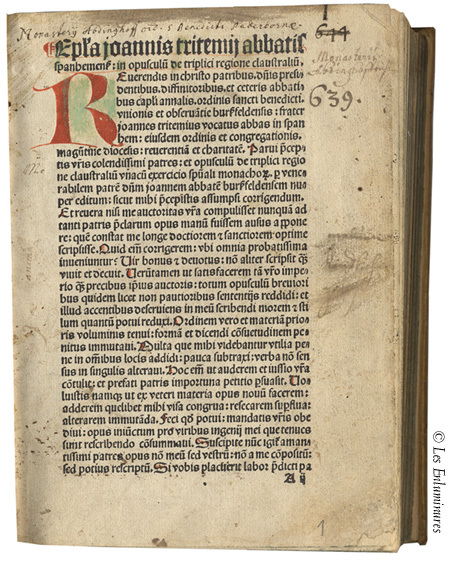 Monasterij Abdinghoff ord. S Benedicti Paderbornæ
644
Monasterij
Abdinghoff
639.
Epľa joannis tritemij abbatis
spanhemenẜ: in opusculũ de triplici regione claustraliũ
Reuerendis in christo patribus. dñis presi
dentibus. diffinitoribus. et ceteris abbati
bus capľi annalis. ordinis sancti benedicti.
vnionis et obseruātie burßfeldensis: frater
joannes tritemius vocatus abbas in span
hem: eiusdem ordinis et congregationis.
magũtine diocesis: reuerentiā et charitatē. Parui p̄cep̄
tis vr̄is colendissimi patres: et opusculũ de triplici regi
one claustraliũ vnacũ exercicio sp̄uali monachoꝝ. ꝑ vene
rabilem patrē dñm joannem abbatē burßfeldensem nu
per editum: sicut mihi p̄cepistis assumpsi corrigendum.
Et reuera nisi me auctoritas vr̄a compulisset nunquā ad
tanti patris p̄clarum opus manũ fuissem ausus apponere
re: quē constat me longe doctiorem ⁊ sanctiorem optime
scripsisse. Quid em̄ corrigerem: vbi omnia probatissima
inueniuntur? Uir bonus ⁊ deuotus: nō aliter scripsit qꝫ
vixit et docuit. Uerũtamen vt satisfacerem tā vr̄o impe-
rio qꝫ precibus ip̄ius auctoris: totum opusculũ breuiori
bus quidem licet non paucioribus sententijs reddidi: et
illud accentibus deseruiens in meũ scribendi morem ⁊ sti
lum quantũ potui reduxi. Ordinem vero et materiā prio
ris voluminis tenui: formā et dicendi cōsuetudinem pe
nitus immutaui. Multa que mihi videbantur vtilia pe
ne in om̄ibus locis addidi: pauca subtraxi: verba nō sen
sus in singulis alteraui. Hoc em̄ ut auderem et iussio vr̄a
cōtulit: et prefati patris importuna petitio ꝑsuasit. Uo-
luistis namqꝫ ut ex veteri materia opus nouũ facerem:
adderem quelibet mihi visa congrua: resecarem suꝑflua:
alterarem immutāda. Feci qđ potui: mandatis vr̄is obe
diui: opus iniũctum pro viribus ingenij mei que tenues
sunt rescribendo cōsummaui. Suscipite nũc igiť aman-
tissimi patres opus nō meũ sed vestrũ: nō a me cōpositũ:
sed potius rescriptũ. Si vobis placuerit labor p̄dicti pa
A ij
1
© Les Enluminures